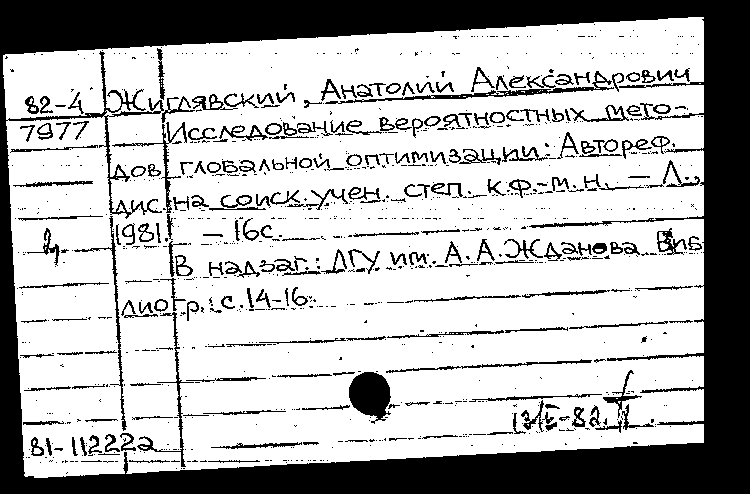 82-4 Жиглявский, Анатолий Александрович
7977 Исследование вероятностных мето-
дов глобальной оптимизации: Автореф.
дис. на соиск. учен. степ. к.ф.-м.н. — Л.,
1981. — 16с.
В надзаг.: ЛГУ им. А. А. Жданова. Биб
лиогр.: с. 14-16.
81-112222